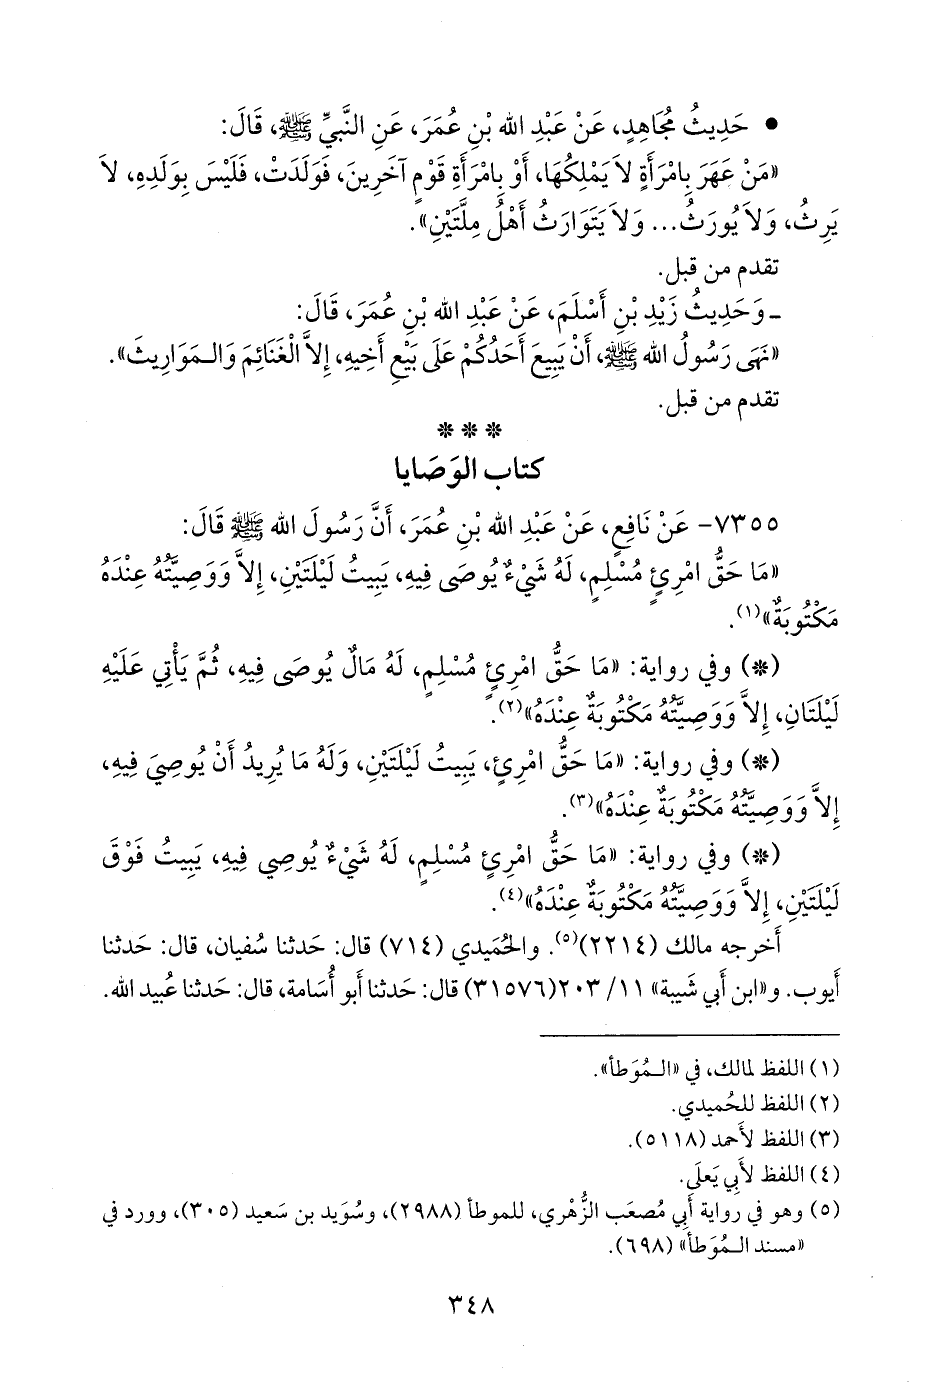 • حَدِيثُ مُجَاهِدٍ، عَنْ عَبْدِ الله بْنِ عُمَرَ، عَنِ النَّبِيِّ ﷺ، قَالَ:
«مَنْ عَهَرَ بِامْرَأَةٍ لاَ يَمْلِكُهَا، أَوْ بِامْرَأَةِ قَوْمٍ آخَرِينَ، فَوَلَدَتْ، فَلَيْسَ بِوَلَدِهِ، لاَ
يَرِثُ، وَلاَ يُورَثُ... وَلاَ يَتَوَارَثُ أَهْلُ مِلَّتَيْنِ».
تقدم من قبل.
ـ وَحَدِيثُ زَيْدِ بْنِ أَسْلَمَ، عَنْ عَبْدِ الله بْنِ عُمَرَ، قَالَ:
«نَهَى رَسُولُ الله ﷺ، أَنْ يَبِيعَ أَحَدُكُمْ عَلَى بَيْعِ أَخِيهِ، إِلاَّ الْغَنَائِمَ وَالـمَوَارِيثَ».
تقدم من قبل.
* * *
كتاب الوَصَايا
٧٣٥٥- عَنْ نَافِعٍ، عَنْ عَبْدِ الله بْنِ عُمَرَ، أَنَّ رَسُولَ الله ﷺ قَالَ:
«مَا حَقُّ امْرِئٍ مُسْلِمٍ، لَهُ شَيْءٌ يُوصَى فِيهِ، يَبِيتُ لَيْلَتَيْنِ، إِلاَّ وَوَصِيَّتُهُ عِنْدَهُ
مَكْتُوبَةٌ»(١).
(*) وفي رواية: «مَا حَقُّ امْرِئٍ مُسْلِمٍ، لَهُ مَالٌ يُوصَى فِيهِ، ثُمَّ يَأْتِي عَلَيْهِ
لَيْلَتَانِ، إِلاَّ وَوَصِيَّتُهُ مَكْتُوبَةٌ عِنْدَهُ»(٢).
(*) وفي رواية: «مَا حَقُّ امْرِئٍ، يَبِيتُ لَيْلَتَيْنِ، وَلَهُ مَا يُرِيدُ أَنْ يُوصِيَ فِيهِ،
إِلاَّ وَوَصِيَّتُهُ مَكْتُوبَةٌ عِنْدَهُ»(٣).
(*) وفي رواية: «مَا حَقُّ امْرِئٍ مُسْلِمٍ، لَهُ شَيْءٌ يُوصِي فِيهِ، يَبِيتُ فَوْقَ
لَيْلَتَيْنِ، إِلاَّ وَوَصِيَّتُهُ مَكْتُوبَةٌ عِنْدَهُ»(٤).
أَخرجه مالك (٢٢١٤)(٥). والحُمَيدي (٧١٤) قال: حَدثنا سُفيان، قال: حَدثنا
أيوب. و«ابن أَبي شَيبة» ١١/ ٢٠٣(٣١٥٧٦) قال: حَدثنا أَبو أُسَامة، قال: حَدثنا عُبيد الله.
(١) اللفظ لمالك، في «الـمُوَطأ».
(٢) اللفظ للحُميدي.
(٣) اللفظ لأَحمد (٥١١٨).
(٤) اللفظ لأَبِي يَعلَى.
(٥) وهو في رواية أَبي مُصعَب الزُّهْري، للموطأ (٢٩٨٨)، وسُوَيد بن سَعيد (٣٠٥)، وورد في
«مسند الـمُوَطأ» (٦٩٨).
٣٤٨